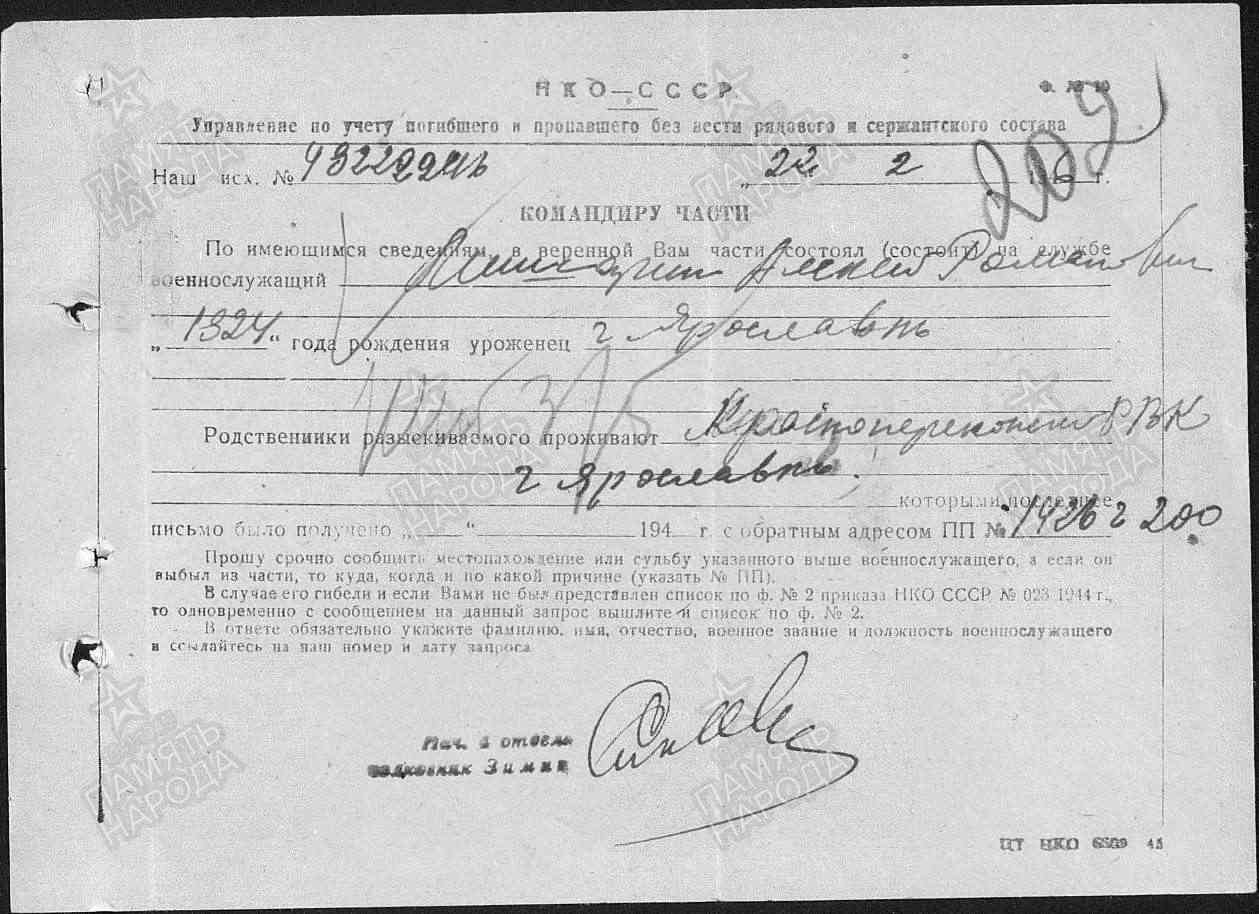 НКО—СССР
Ф. № 10
Управление по учету погибшего и пропавшего без вести рядового и сержантского состава
209
Наш исх. № „22 2 г.
КОМАНДИРУ ЧАСТИ
По имеющимся сведениям, в веренной Вам части состоял (состоит) на службе
военнослужащий Романович
„1924“ года рождения уроженец г Ярославль
Родственники разыскиваемого проживают Красноперекопский РВК
г Ярославль.
которыми последнее
письмо было получено „ “ 194 г. с обратным адресом ПП №
Прошу срочно сообщить местонахождение или судьбу указанного выше военнослужащего, а если он
выбыл из части, то куда, когда и по какой причине (указать № ПП).
В случае его гибели и если Вами не был представлен список по ф. № 2 приказа НКО СССР № 023 1944 г.,
то одновременно с сообщением на данный запрос вышлите и список по ф. № 2.
В ответе обязательно укажите фамилию, имя, отчество, военное звание и должность военнослужащего
и ссылайтесь на наш номер и дату запроса
Нач. отдела
полковник Зимин
ЦТ НКО 45
ПАМЯТЬ НАРОДА
ПАМЯТЬ НАРОДА
ПАМЯТЬ НАРОДА
ПАМЯТЬ НАРОДА
ПАМЯТЬ НАРОДА
ПАМЯТЬ НАРОДА